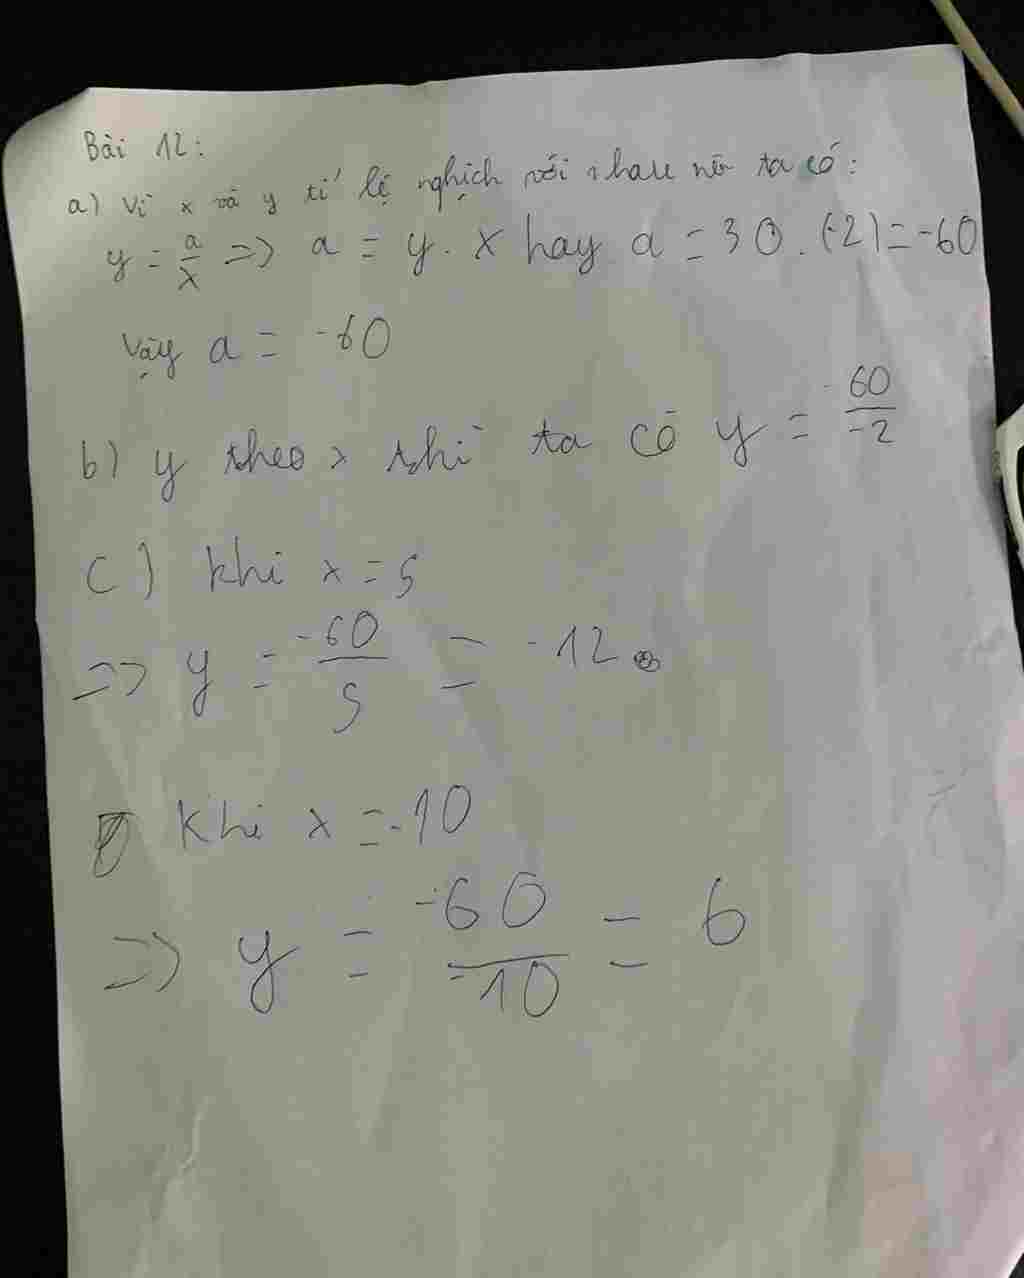 Bài 12:
a) Vì x và y tỉ lệ nghịch với nhau nên ta có:
y = a/x => a = y . x hay a = 30 . (-2) = -60
Vậy a = -60
b) y theo x thì ta có y = -60/-2
c) khi x = 5
=> y = -60/5 = -12
khi x = -10
=> y = -60/-10 = 6